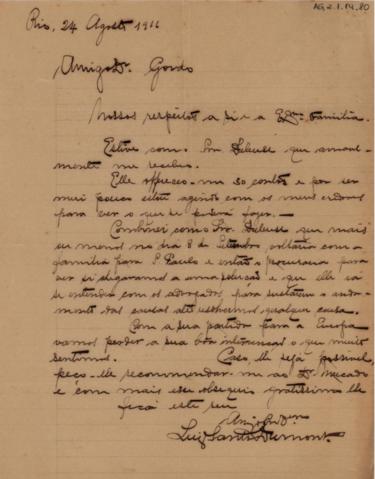 AG.2.1.14.80
Rio, 24 Agosto 1916
Amigo Dr. Gordo
Nossos respeitos a si e a Exma. Familia.
Estive com o Snr. que amavel-
mente me recebeu.
Elle offereceu-me 50 contos e por ser
muito pouco estou agindo com os meus credores
para ver o que se poderá fazer.—
Combinei com o Snr. que mais
ou menos no dia 8 de Setembro voltaria com a
familia para S. Paulo e então o procuraria para
ver si chegaramos a uma solução e que elle ia
se entender com os advogados para sustarem o anda-
mento das causas até resolvermos qualquer cousa.
Com a sua partida para a Europa
vamos perder a sua boa o que muito
sentimos. Caso lhe seja possivel,
peço-lhe recommendar-me ao Dr. Macedo
e com mais esse obsequio gratissimo lhe
fica este seu
Luiz Santos Dumont.